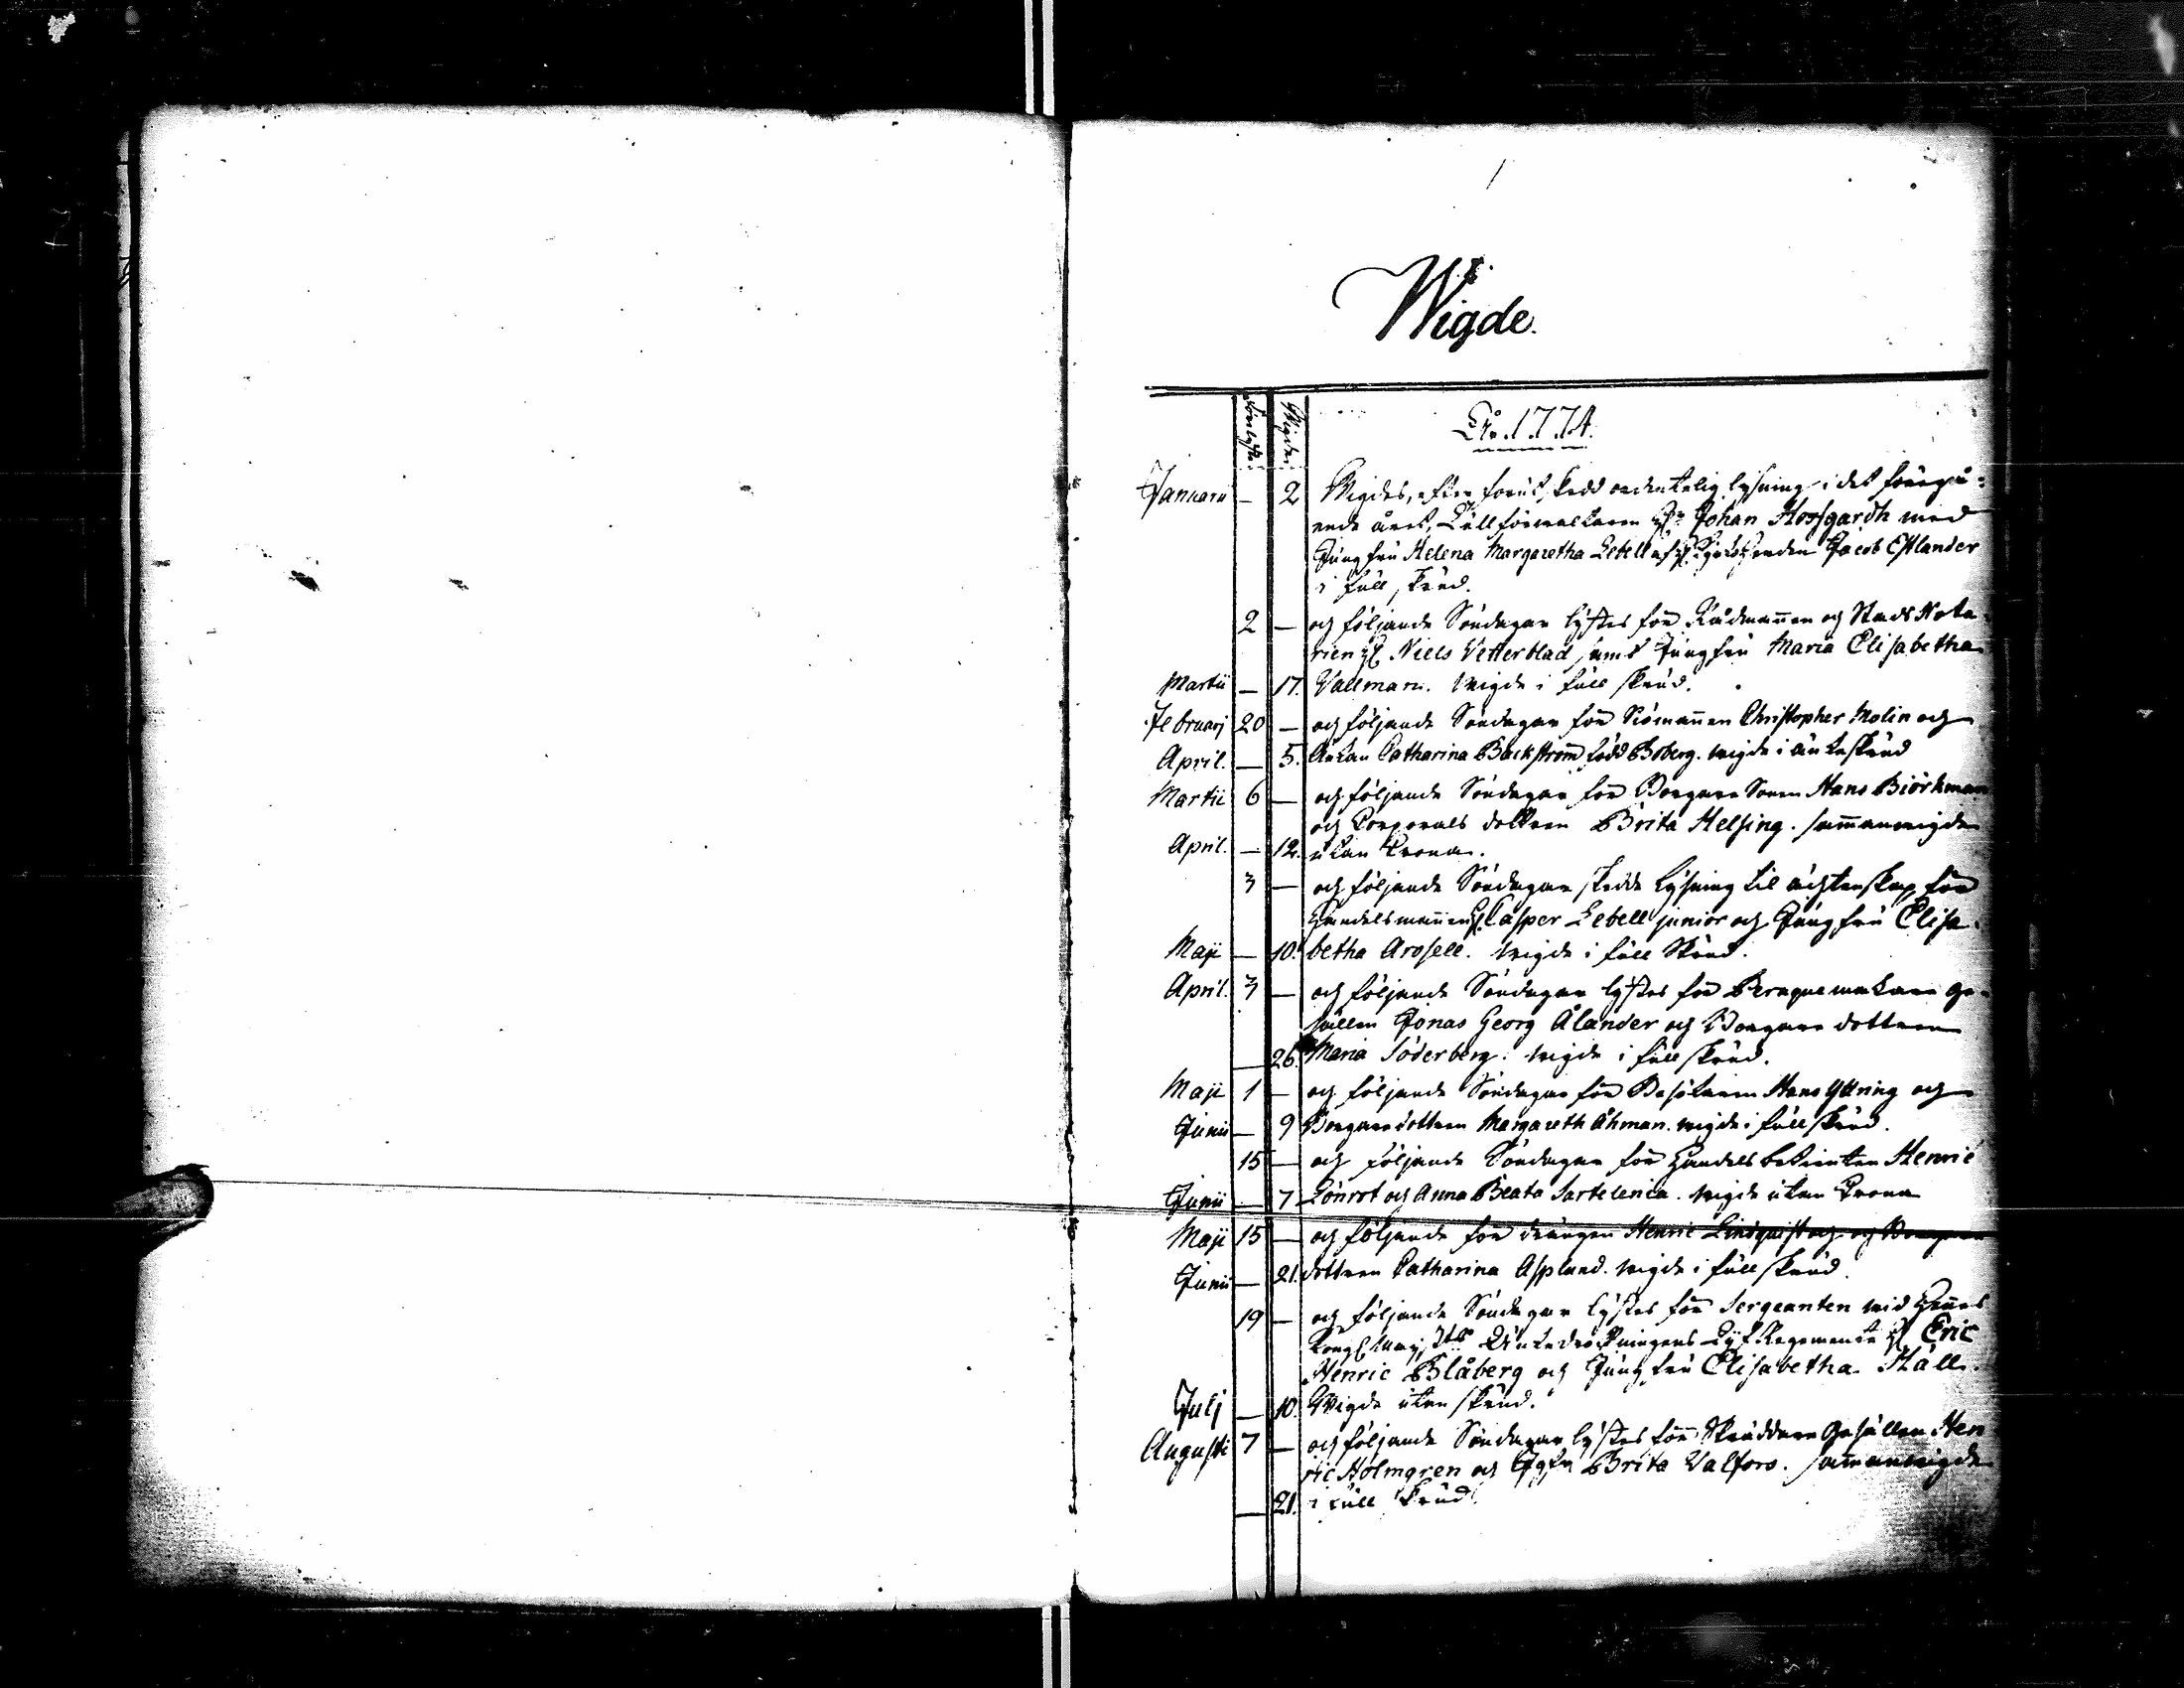 Wigde.
Förelyste. Wigde. År 1774.
Januarii — 2 Wigdes, efter förut skedd ordentelig lysning i det föregå-
ende året, Tullförvaltaren Hr Johan Hossgardh med
Jungfru Helena Margaretha Lebell af Jacob Estlander
i full skrud.
2 — och följande Söndagar lystes för Rådmannen och Stads Nota-
rien H. Niels Vetterblad samt Jungfru Maria Elisabetha
Martii — 17. Vallman. wigde i full skrud.
Februarj 20 — och följande Söndagar för Siömannen Christopher Molin och
April. — 5. Änkan Catharina Backström född Boberg. wigde i änkeskrud
Martii 6 — och följande Söndagar för Borgare Sonen Hans Biörkman
och Corporals dottren Brita Helsing. sammanwigde
April. — 12. utan Krona.
3 — och följande Söndagar skedde lysning til ächtenskap för
Handelsmannen H. Casper Lebell junior och Jungfru Elisa-
Maji — 10. betha Arosell. wigde i full Skrud.
April. 3 — och följande Söndagar lystes för Peruquemakare ge-
sällen Jonas Georg Ålander och Borgare dottren
— 26. Maria Söderberg. wigde i full skrud.
Maji 1 — och följande Söndagar för Besökaren Hans Yttring och
Junii — 9 Borgaredottren Margareth Åhman. wigde i full skrud.
15 — och följande Söndagar för Handels betienten Henric
Junii — 7 Lönrot och Anna Beata Sartelenia. wigde utan Krona
Maji 15 — och följande för drängen Henric Lindquist och och Borgare
Junii — 21. dottren Catharina Asplund. wigde i full skrud.
19 — och följande Söndagar lystes för Sergeanten wid Hennes
Kongl. Maj:ts Änkedrottningens Lif Regemente H. Eric
Henric Blåberg och Jungfru Elisabetha Ståll.
Julj — 10. Wigde utan skrud.
Augusti 7 — och följande Söndagar lystes för Skräddare Gesällen Hen
ric Holmgren och Jgfr Brita Valfors. sammanwigde
— 21. i full skrud.